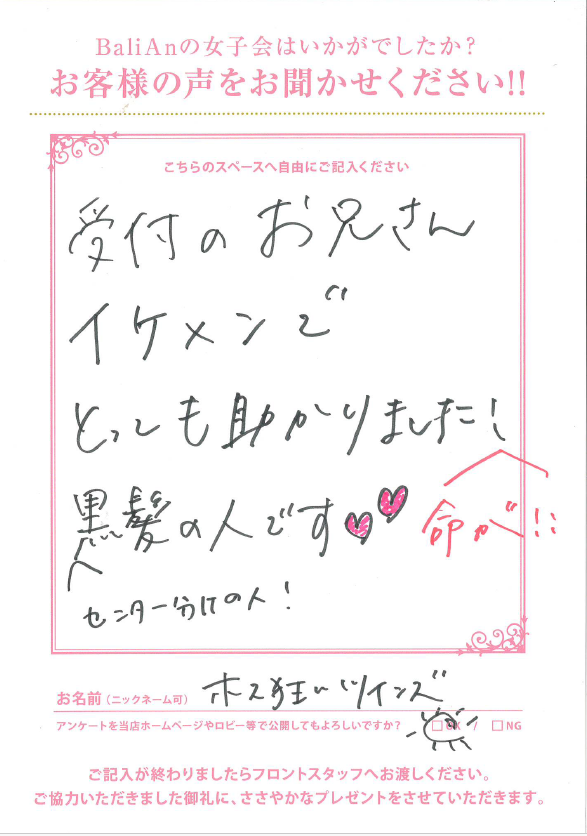 BaliAnの女子会はいかがでしたか?
お客様の声をお聞かせください!!
こちらのスペースへ自由にご記入ください
受付のお兄さん
イケメンで
とっても助かりました!
命が!!
黒髪の人です
センター分けの人!
お名前(ニックネーム可) ホス狂いツインズ
アンケートを当店ホームページやロビー等で公開してもよろしいですか? □OK / □NG
ご記入が終わりましたらフロントスタッフへお渡しください。
ご協力いただきました御礼に、ささやかなプレゼントをさせていただきます。